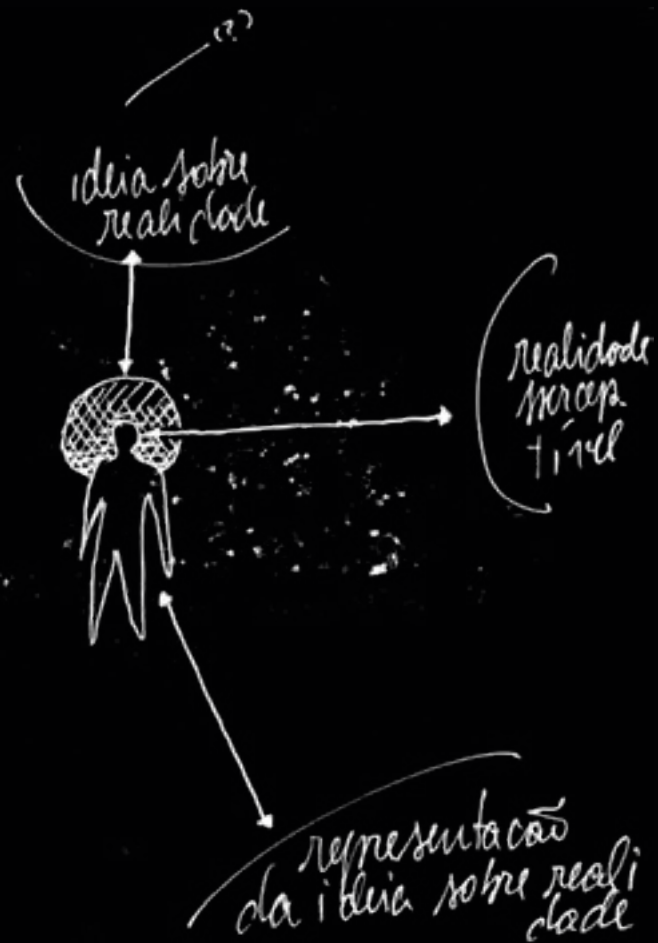 (?)
ideia sobre
realidade
realidade
percep
tível
representação
da ideia sobre reali
dade